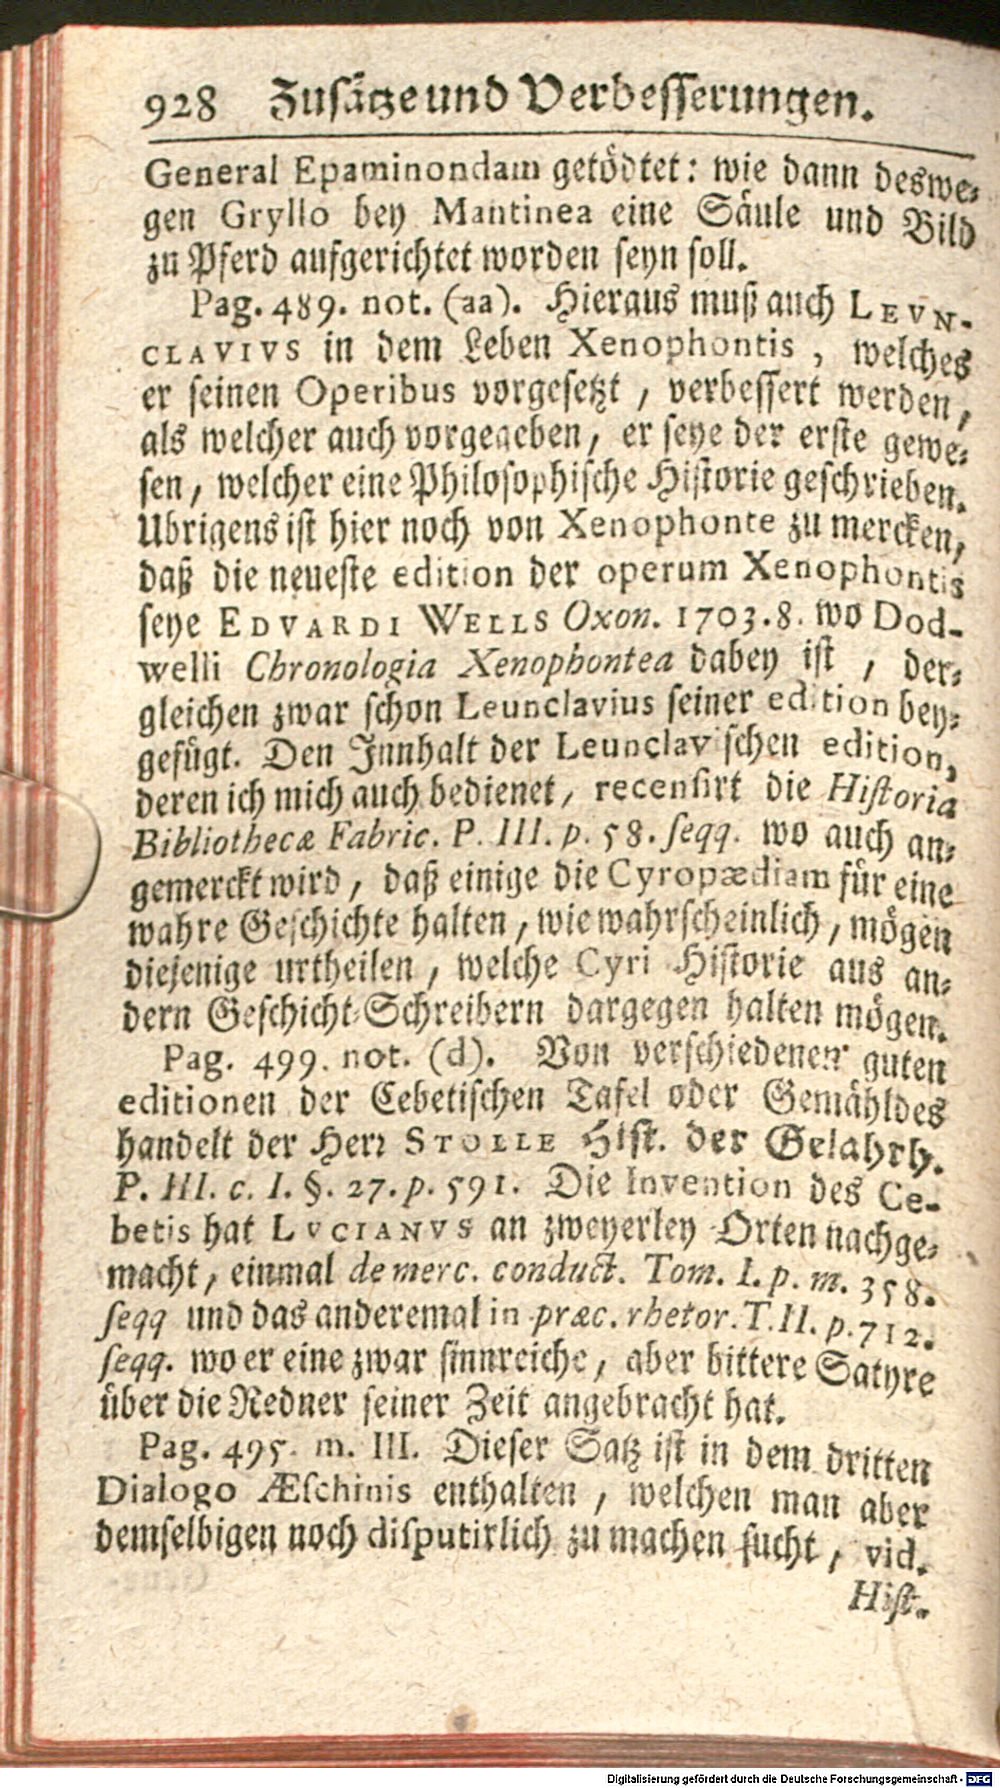 928 Zusätze und Verbesserungen.
General Epaminondam getödtet: wie dann deswe-
gen Gryllo bey Mantinea eine Säule und Bild
zu Pferd aufgerichtet worden seyn soll.
Pag. 489. not. (aa). Hieraus muß auch LEVN-
CLAVIVS in dem Leben Xenophontis, welches
er seinen Operibus vorgesetzt, verbessert werden,
als welcher auch vorgegeben, er seye der erste gewe-
sen, welcher eine Philosophische Historie geschrieben.
Ubrigens ist hier noch von Xenophonte zu mercken,
daß die neueste edition der operum Xenophontis
seye EDVARDI WELLS Oxon. 1703. 8. wo Dod-
welli Chronologia Xenophontea dabey ist, der-
gleichen zwar schon Leunclavius seiner edition bey-
gefügt. Den Innhalt der Leunclavischen edition,
deren ich mich auch bedienet, recensirt die Historia
Bibliothecæ Fabric. P. III. p. 58. seqq. wo auch an-
gemerckt wird, daß einige die Cyropædiam für eine
wahre Geschichte halten, wie wahrscheinlich, mögen
diejenige urtheilen, welche Cyri Historie aus an-
dern Geschicht-Schreibern dargegen halten mögen.
Pag. 499. not. (d). Von verschiedenen guten
editionen der Cebetischen Tafel oder Gemähldes
handelt der Herr STOLLE Hist. der Gelahrh.
P. III. c. I. §. 27. p. 591. Die Invention des Ce-
betis hat LVCIANVS an zweyerley Orten nachge-
macht, einmal de merc. conduct. Tom. I. p. m. 358.
seqq und das anderemal in præc. rhetor. T. II. p. 712.
seqq. wo er eine zwar sinnreiche, aber bittere Satyre
über die Redner seiner Zeit angebracht hat.
Pag. 495. m. III. Dieser Satz ist in dem dritten
Dialogo Æschinis enthalten, welchen man aber
demselbigen noch disputirlich zu machen sucht, vid.
Hist.
Digitalisierung gefördert durch die Deutsche Forschungsgemeinschaft - DFG